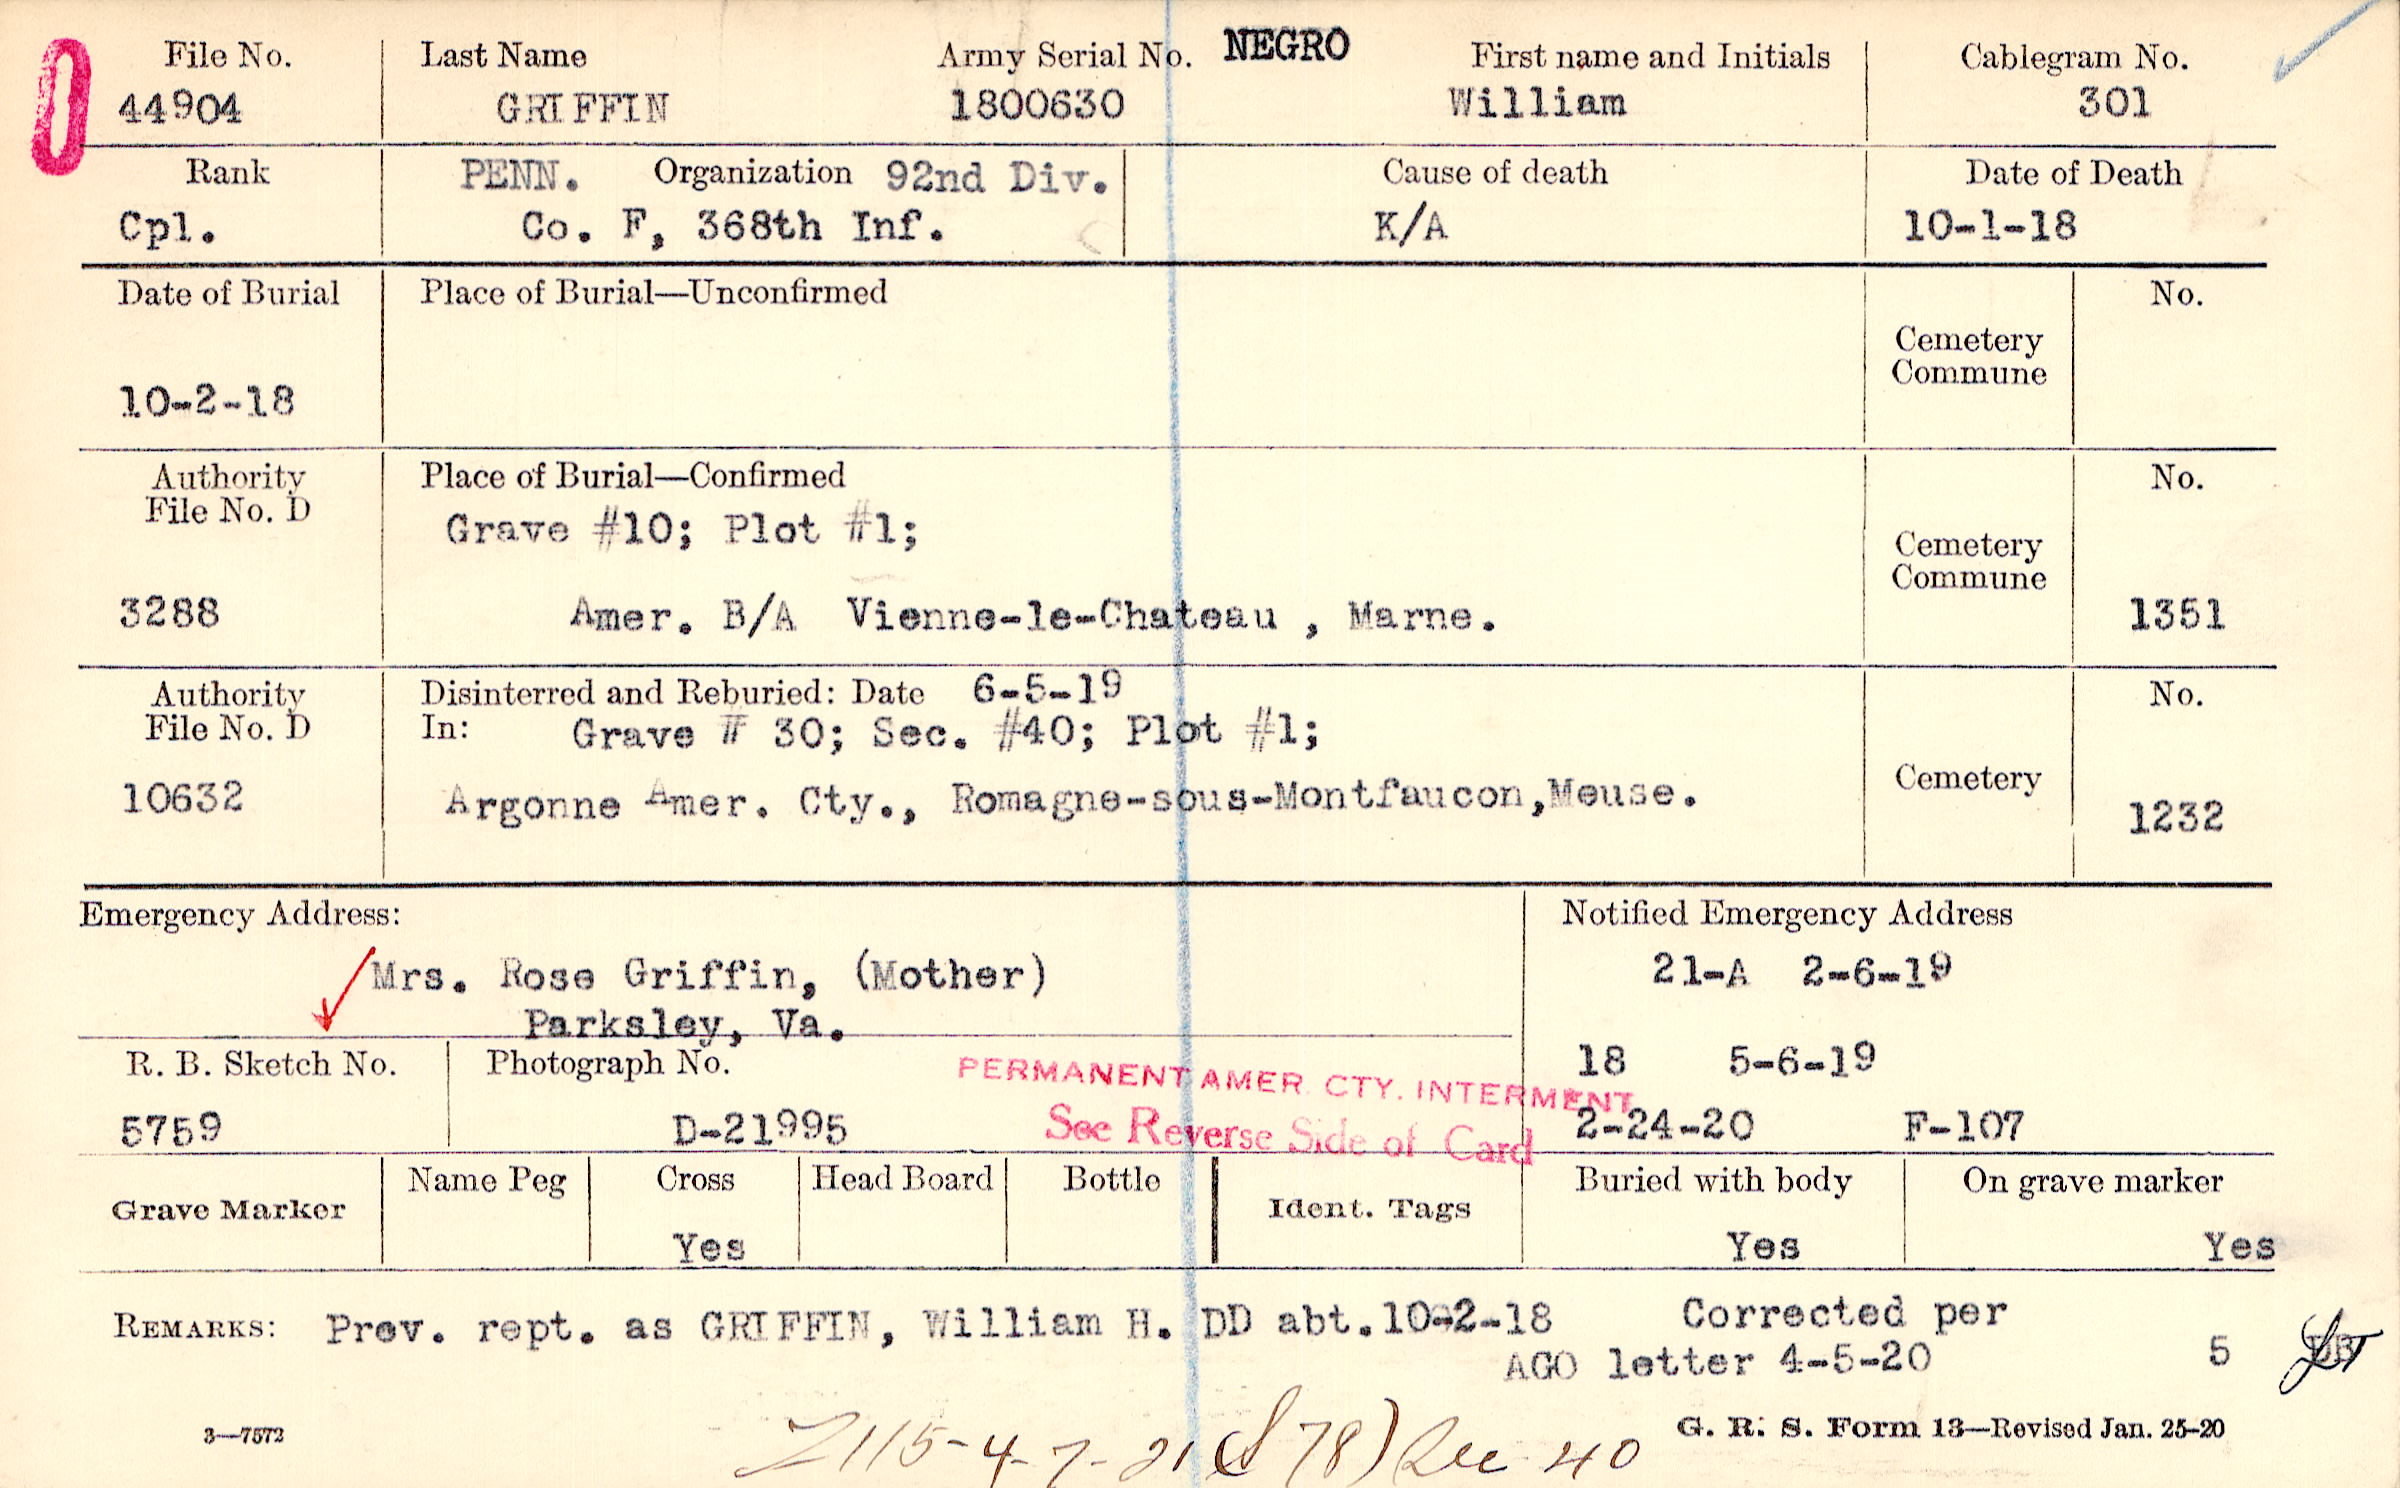 File No. Last Name Army Serial No. NEGRO First name and Initials Cablegram No.
44904 GRIFFIN 1800630 William 301
Rank PENN. Organization 92nd Div. Cause of death Date of Death
Cpl. Co. F, 368th Inf. K/A 10-1-18
Date of Burial Place of Burial—Unconfirmed No.
Cemetery
Commune
10-2-18
Authority Place of Burial—Confirmed No.
File No. D
Grave #10; Plot #1;
Cemetery
Commune
3288 Amer. B/A Vienne-le-Chateau , Marne. 1351
Authority Disinterred and Reburied: Date 6-5-19 No.
File No. D In: Grave # 30; Sec. #40; Plot #1;
Cemetery
10632 Argonne Amer. Cty., Romagne-sous-Montfaucon,Meuse.
1232
Emergency Address: Notified Emergency Address
Mrs. Rose Griffin, (Mother) 21-A 2-6-19
Parksley, Va.
R. B. Sketch No. Photograph No. 18 5-6-19
PERMANENT AMER. CTY. INTERMENT
5759 D-21995 See Reverse Side of Card 2-24-20 F-107
Grave Marker Name Peg Cross Head Board Bottle Ident. Tags Buried with body On grave marker
Yes Yes Yes
REMARKS: Prev. rept. as GRIFFIN, William H. DD abt.10-2-18 Corrected per
AGO letter 4-5-20 5
3—7572 G. R. S. Form 13—Revised Jan. 25-20
4-7-21 78) Sec 40